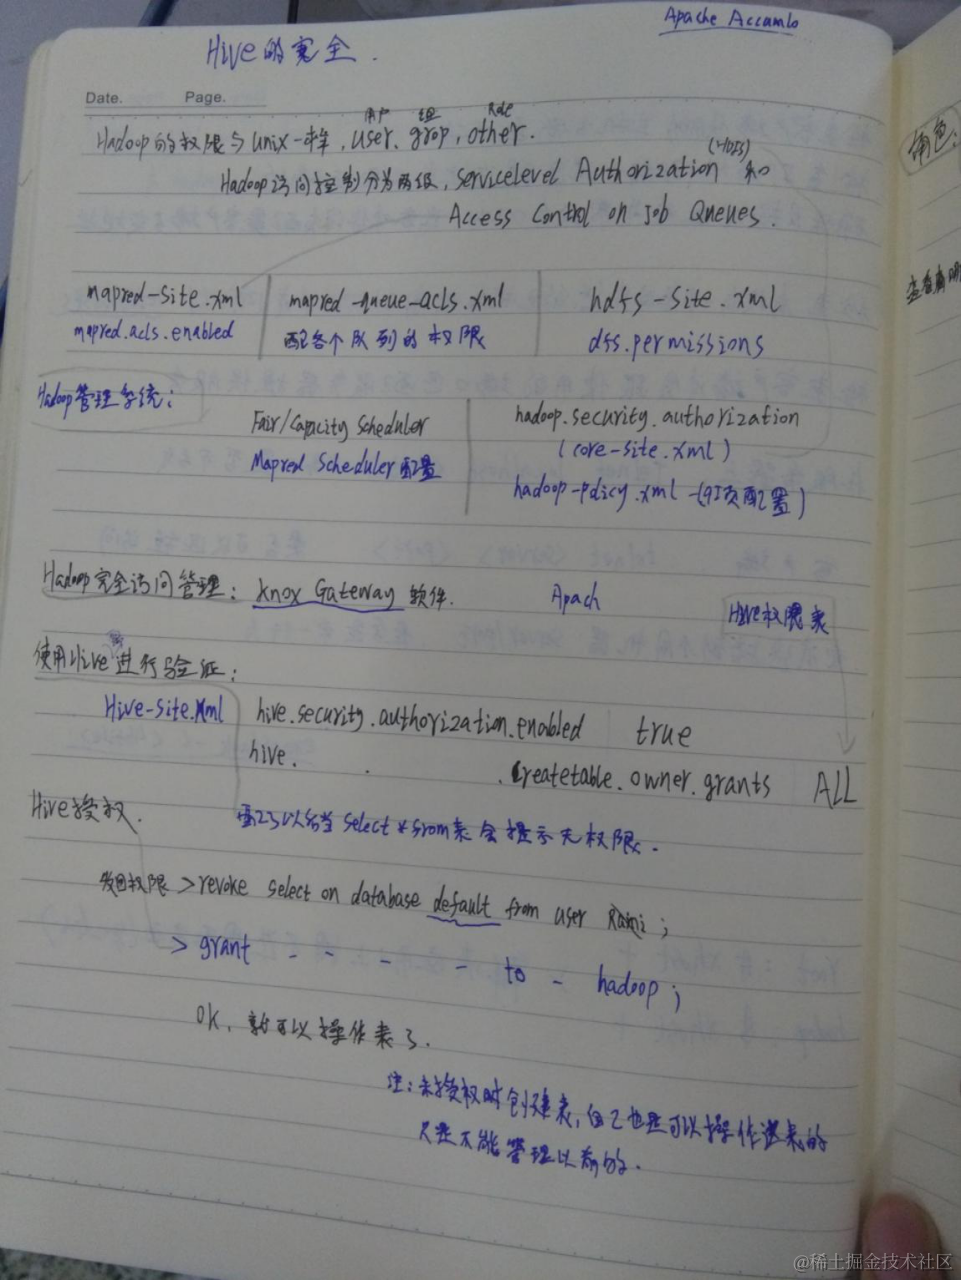 Apache Accumlo
Hive的安全.
Date. Page.
用户 组 Role
Hadoop的权限与unix一样, user, grop, other.
(HDFS)
Hadoop访问控制分为两级, servicelevel Authorization 和
Access Control on Job Queues.
mapred-site.xml mapred-queue-acls.xml hdfs-site.xml
mapred.acls.enabled 配各个队列的权限 dfs.permissions
Hadoop管理系统:
Fair/Capacity Scheduler hadoop.security.authorization
Mapred Scheduler配置 (core-site.xml)
hadoop-policy.xml (9项配置)
Hadoop安全访问管理: Knox Gateway 软件. Apach
Hive权限表
使用Hive进行验证:
Hive-site.xml hive.security.authorization.enabled true
hive. . .createtable.owner.grants ALL
Hive授权.
以后当select * from表会提示无权限.
权限 >revoke select on database default from user Rami;
>grant - - - - to - hadoop;
OK, 就可以操作表了.
注: 未授权时创建表, 自己也是可以操作这表的
只是不能管理以前的.
角色:
查看
@稀土掘金技术社区